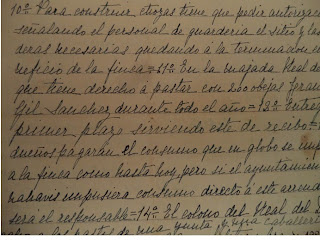 10ª Para construir chozas tiene que pedir autorizac
señalando el personal de guarderia el sitio y las
deras necesarias quedando á la terminadon
neficio de la finca=11ª En la majada Real de
que tiene derecho á pastar con 200 obejas Fran
Gil Sanchez, durante todo el año=13ª Entreg
primer plazo sirviendo este de recibo=
dueños pagarán el consumo que en globo se imp
a la finca como hasta hoy, pero si el ayuntamien
nahavis impusiera consumo directo á este arrenda
será el responsable=14ª El colono del Real del
los pastos de una yunta